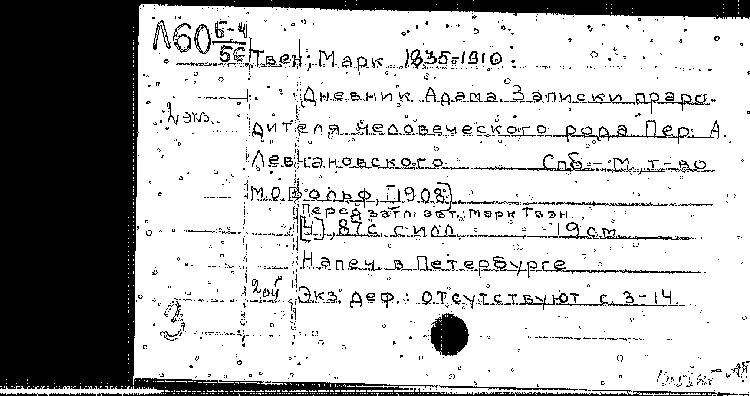 Л60 6-4
56
Твен, Марк 1835-1910.
Дневник Адама. Записки праро-
2 экз.
дителя человеческого рода. Пер. А.
Левгановского. Спб.-М, т-во
М.О.Вольф, [1908]
Перед загл. авт.: Марк Твэн.
[4], 87 с. с илл. 19 см.
Напеч. в Петербурге
2ой Экз. деф.: отсутствуют с. 3-14.
3